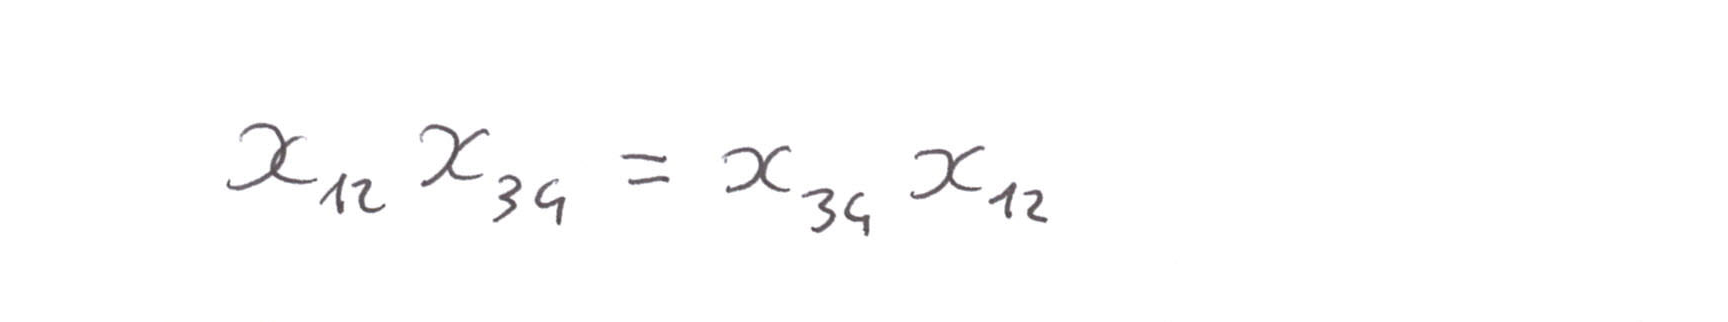 x₁₂ x₃₄ = x₃₄ x₁₂